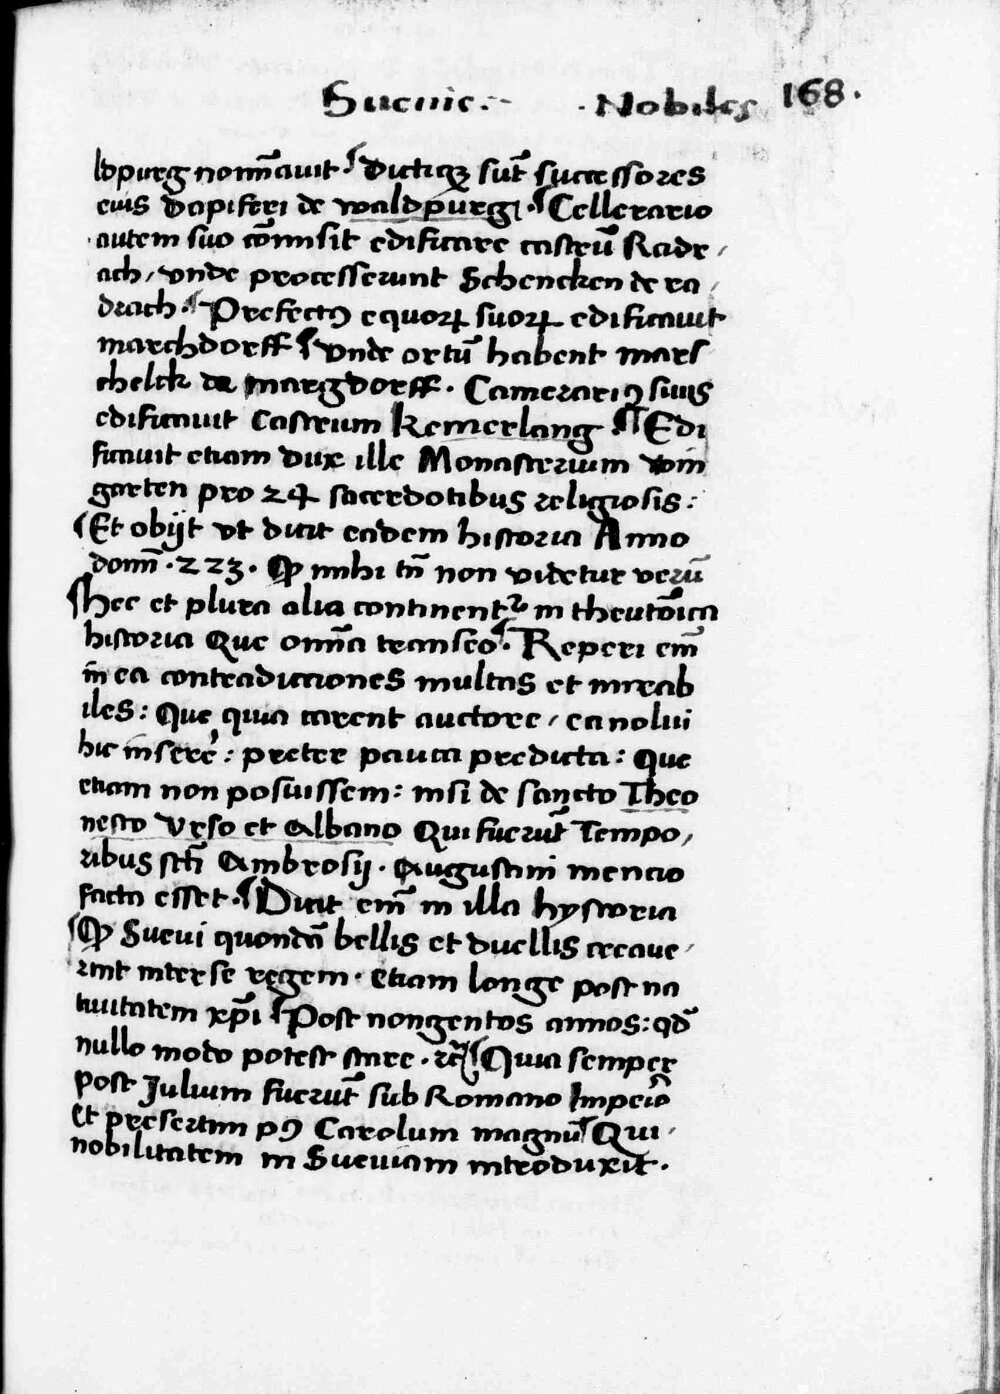 Sueuie. Nobiles 168.
ldpurg nom̄auit ¶ Dictiqꝫ sūt successores
eius dapiferi de waldpurg. ¶ Cellerario
autem suo cōmisit edificare castrū Radr
ach, vnde processerunt Schencken de ra
drach. ¶ Prefectꝯ equoꝝ suoꝝ edificauit
marchdorff ¶ vnde ortū habent mars
chelck de margdorff. Camerariꝯ suus
edificauit castrum kemerlang. ¶ Edi
ficauit etiam dux ille Monasterium win
garten pro 24 sacerdotibus religiosis:
¶ Et obijt vt dicit eadem historia Anno
dom̄ . 223 . Ꝙ mihi tn̄ non videtur verū
¶ hec et plura alia continentᷣ in theutōica
historia Que omīa transeo. ¶ Reperi em̄
in ea contradicciones multas et mirab
iles: Que quia carent auctore, ea nolui
hic inserē: preter pauca predicta: Que
etiam non posuissem: nisi de sancto Theo
nesto Vrso et Albano Qui fuerūt Tempo,
ribus sct̄i Ambrosij. Augustini mencio
facta esset. ¶ Dicit em̄ in illa hystoria
¶ Ꝙ Sueui quondā bellis et duellis creaue,
runt inter se regem. etiam longe post na
tiuitatem xp̄i ¶ Post nongentos annos: qd̄
nullo modo potest stare. rc̄ ¶ Quia semper
post Julium fuerūt sub Romano Impeio̅
Et presertim pꝯ Carolum magnū ¶ Qui
nobilitatem in Sueuiam introduxit.